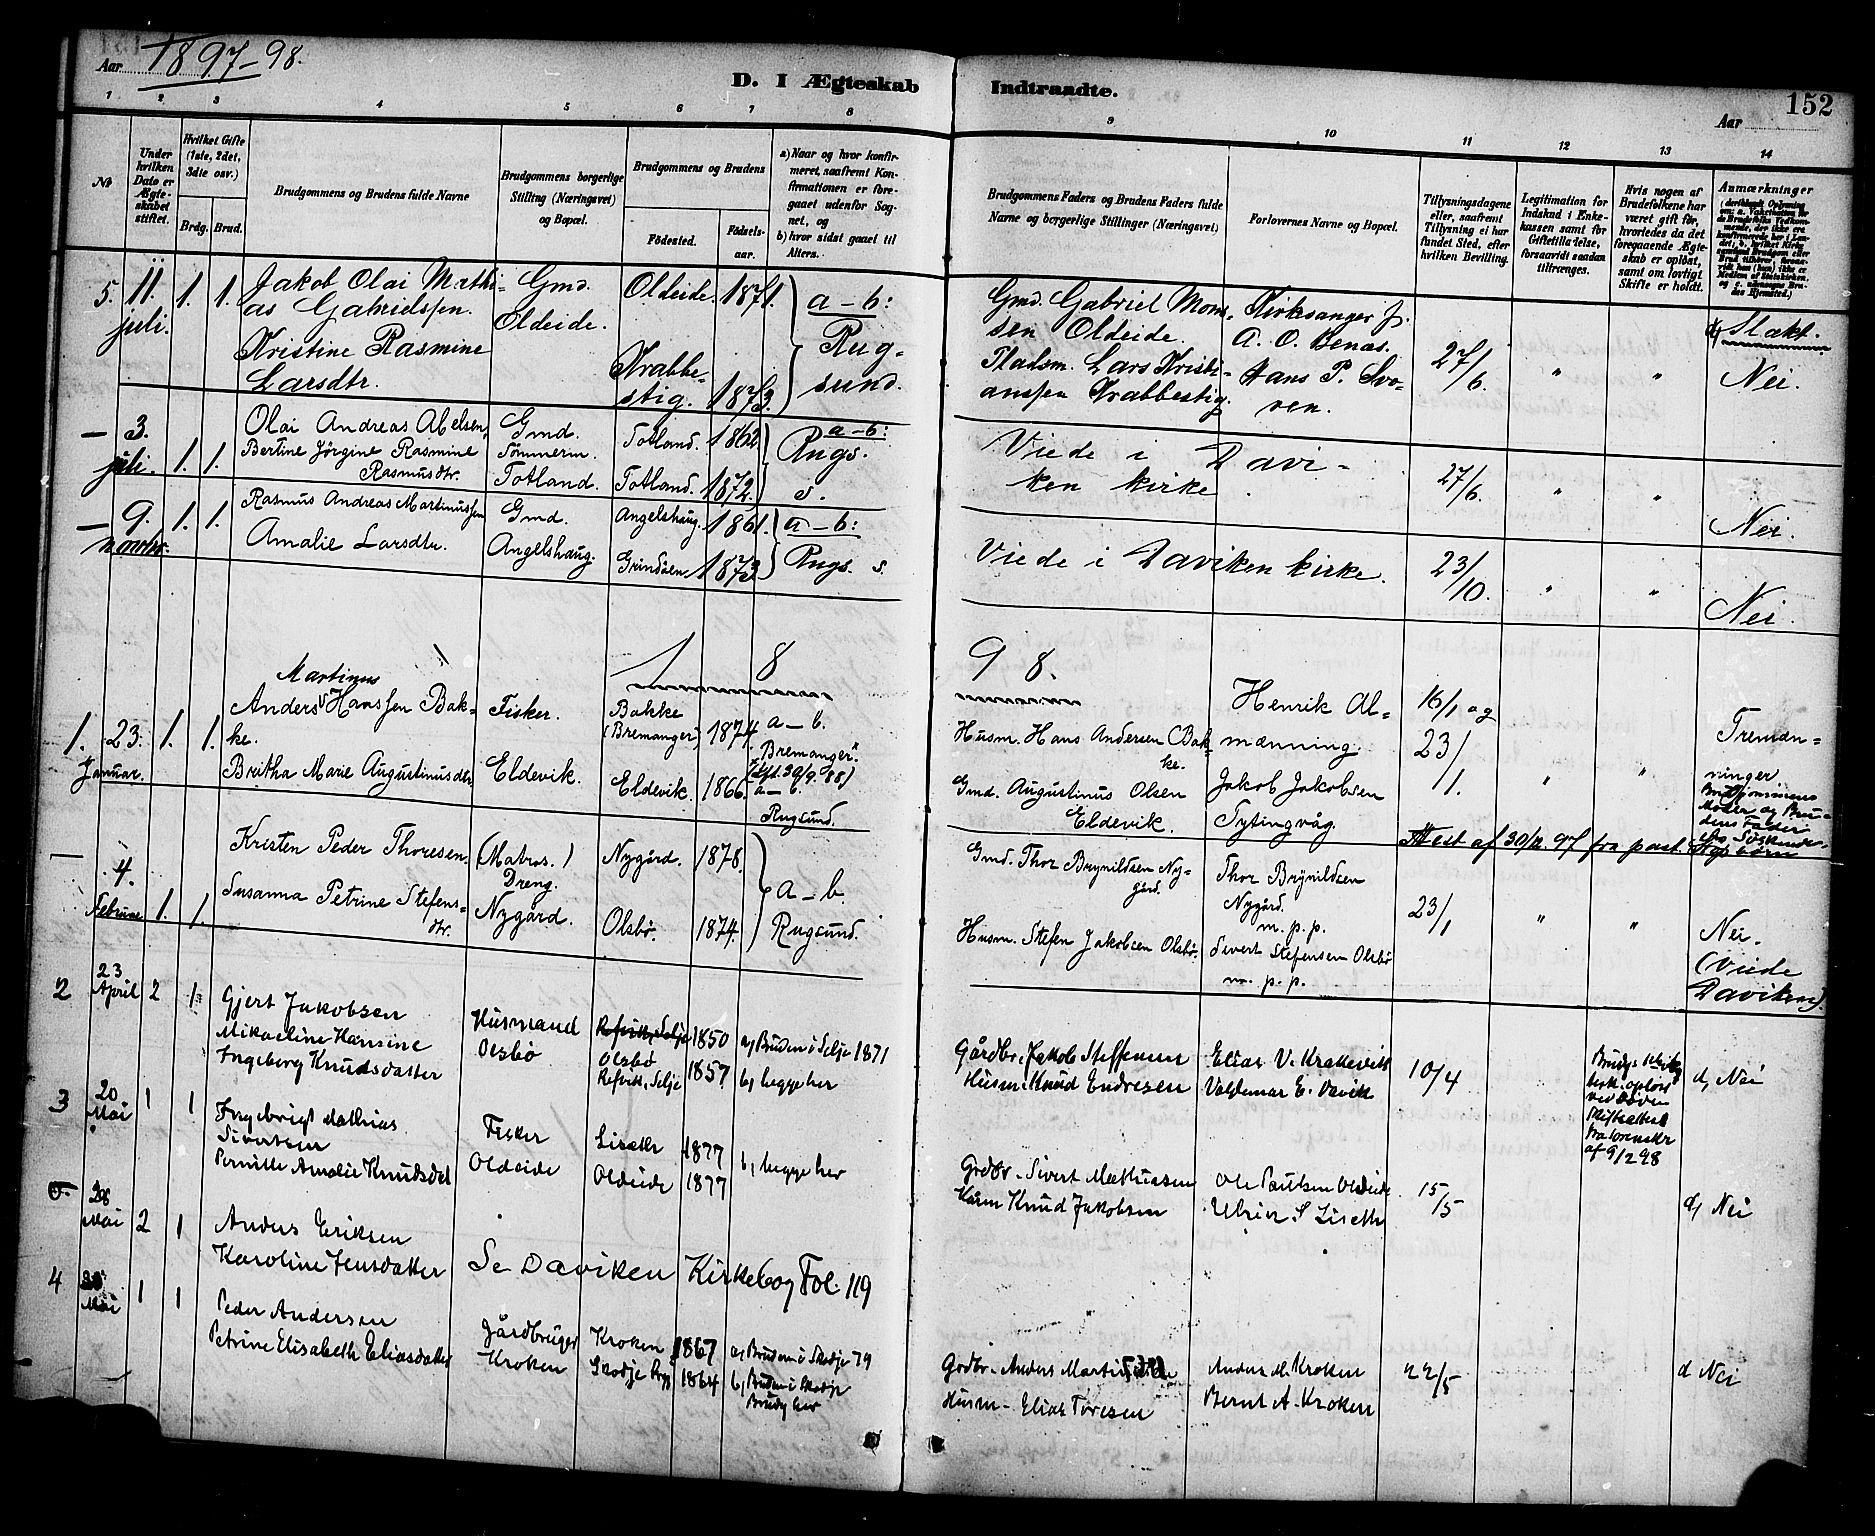 Aar 1897-98.
D. I Ægteskab Indtraadte.
152
Aar
1 2 3 4 5 6 7 8 9 10 11 12 13 14
No
Under hvilken Dato er Ægteskabet stiftet.
Hvilket Gifte (1ste, 2det, 3die osv.)
Brdg. Brud.
Brudgommens og Brudens fulde Navne
Brudgommens borgerlige Stilling (Næringsvei) og Bopæl.
Brudgommens og Brudens
Fødested. Fødselsaar.
a) Naar og hvor konfirmeret, saafremt Konfirmationen er foregaaet udenfor Sognet, og
b) hvor sidst gaaet til Alters.
Brudgommens Faders og Brudens Faders fulde Navne og borgerlige Stillinger (Næringsvei)
Forlovernes Navne og Bopæl.
Tillysningsdagene eller, saafremt Tillysning ei har fundet Sted, efter hvilken Bevilling.
Legitimation for Indskud i Enkekassen samt for Giftetilladelse, forsaavidt saadan tiltrænges.
Hvis nogen af Brudefolkene har været gift før, hvorledes da det foregaaende Ægteskab er opløst, samt om lovligt Skifte er holdt.
Anmærkninger
5. 11. juli. 1. 1. Jakob Olai Mathi-
as Gabrielssen.
Kristine Rasmine
Larsdtr.
Gmd.
Oldeide.
Oldeide. 1871.
Krabbe-
stig. 1873.
a-b:
Rug-
sund.
Gmd. Gabriel Mons-
sen Oldeide.
Pladsm. Lars Kristi-
anssen Krabbestig.
Kirksanger
A. O. Benæs.
Hans P. Svo-
ren.
27/6. " "
Slækt.
Nei.
- 3. juli. 1. 1. Olai Andreas Abelsen,
Bertine Jørgine Rasmine
Rasmusdtr.
Gmd.
Tømmerm.
Totland.
Totland.
Totland. 1872.
a-b:
Rugs.
s.
Viede i Davi-
ken kirke.
27/6. " "
Nei.
- 9. novbr. 1. 1. Rasmus Andreas Martinussen
Amalie Larsdtr.
Gmd.
Angelshaug.
Angelshaug. 1861.
Grindøen 1873.
a-b:
Rugs. s.
Viede i Daviken kirke.
23/10. " "
Nei.
18 98.
1. 23. Januar. 1. 1. Martinus
Anders Hanssen Bak-
ke.
Britha Marie Augustinusdtr.
Fisker.
Eldevik.
Bakke
(Bremanger) 1874.
Eldevik. 1866.
a-b.
Bremanger
a-b.
Rugsund.
Husm. Hans Andersen Bak-
ke.
Gmd. Augustinus Olsen
Eldevik.
Henrik Al-
mænning.
Jakob Jakobsen
Tytingvåg.
16/1 og
23/1. " "
Tremæn-
ninger
Brudgommens
Moder og Bru-
dens Fader
Attest af 30/12. 97 fra past.
- 4. Februar 1. 1. Kristen Peder Thoresen.
Susanna Petrine Stefens-
dtr.
(Matros.)
Dreng.
Nygård.
Nygård. 1878.
Olsbø. 1874.
a-b.
Rugsund.
Gmd. Thor Brynildsen Ny-
gård.
Husm. Stefen Jakobsen Olsbø.
Thor Brynildsen
Nygård.
m. p. p.
Sivert Stefensen Olsbø
m. p. p.
23/1 " "
Nei.
(Viede
Daviken).
2 23 April 2 1 Gjert Jakobsen
Mikaeline Hansine
Ingeborg Knudsdatter
Husmand
Olsbø
1850
Olsbø
Refvik, Selje 1857
a, Bruden i Selje 1871
b, begge her
Gårdbr. Jakob Steffensen
Husm. Knud Endresen
Elias V. Krakevik
Valdemar E. Davik
10/4
af 9/2 98
d, Nei
3 20 Mai 1 1 Ingebrigt Mathias
Sivertsen
Pernille Amalie Knudsdat
Fisker
Oldeide
Liseth 1877
Oldeide 1877
b, begge her
Grdbr. Sivert Mathiassen
Husm Knud Jakobsen
Ole Paulsen Oldeide
Ulrik S Liseth
15/5
d, Nei
28 Mai 2 1 Anders Eriksen
Karoline Jensdatter
Se Daviken Kirkebog Fol. 119
4 Mai 1 1 Peder Andersen
Petrine Elisabeth Eliasdatter
Gårdbruger
Kroken
Kroken 1867
Skodje 1864
a, Bruden i Skodje 79
b, Bruden i Skodje
Brudg her
Grdbr. Anders
Husm. Elias Toresen
Anders M. Kroken
Bernt A. Kroken
22/5
d Nei